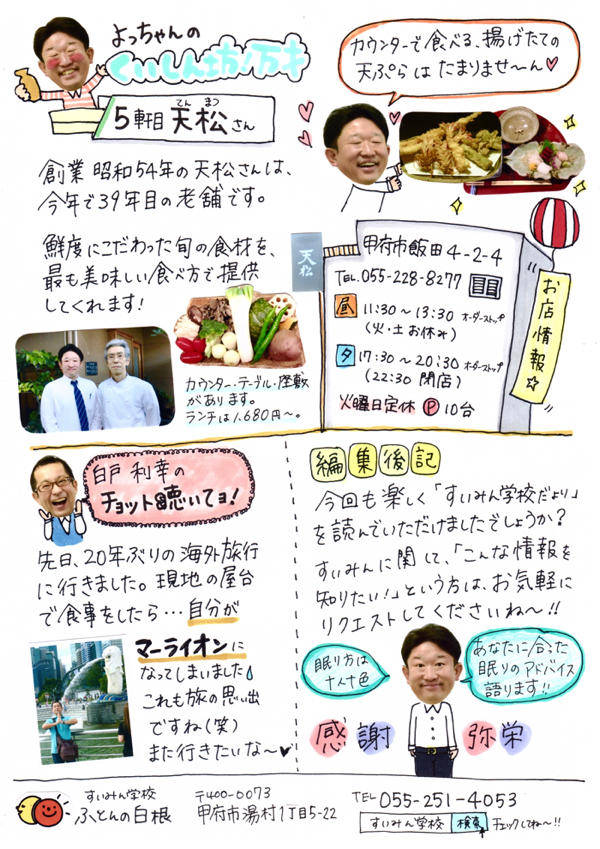 よっちゃんの
くいしん坊!万才
5軒目 天松さん
てん まつ
カウンターで食べる、揚げたての
天ぷらは たまりませ~ん♡
創業 昭和54年の天松さんは、
今年で39年目の老舗です。
鮮度にこだわった旬の食材を、
最も美味しい食べ方で提供
してくれます!
カウンター・テーブル・座敷
があります。
ランチは1,680円~。
天松
甲府市飯田4-2-4
TEL.055-228-8277
昼 11:30~13:30 オーダーストップ
(火・土お休み)
夕 17:30~20:30 オーダーストップ
(22:30 閉店)
火曜日定休 P 10台
お店情報☆
白戸 利幸の
チョット聴いてョ!
先日、20年ぶりの海外旅行
に行きました。現地の屋台
で食事をしたら…自分が
マーライオンに
なってしまいました
これも旅の思い出
ですね(笑)
また行きたいな~♥
編集後記
今回も楽しく「すいみん学校だより」
を読んでいただけましたでしょうか?
すいみんに関して、「こんな情報を
知りたい!」という方は、お気軽に
リクエストしてくださいね~!!
眠り方は
十人十色
あなたに合った
眠りのアドバイス
語ります!!
感謝 弥栄
すいみん学校
ふとんの白根
〒400-0073
甲府市湯村1丁目5-22
TEL 055-251-4053
すいみん学校 検索 チェックしてね~!!